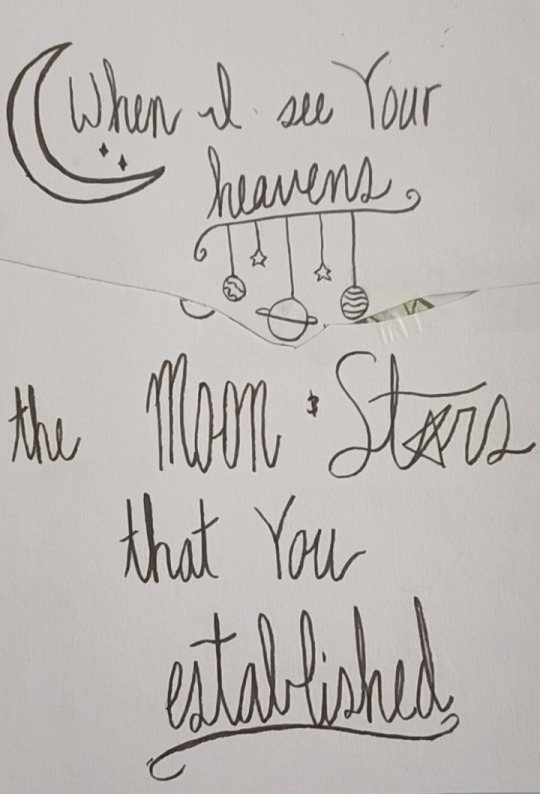 When I see Your
heavens
the Moon & Stars
that You
established